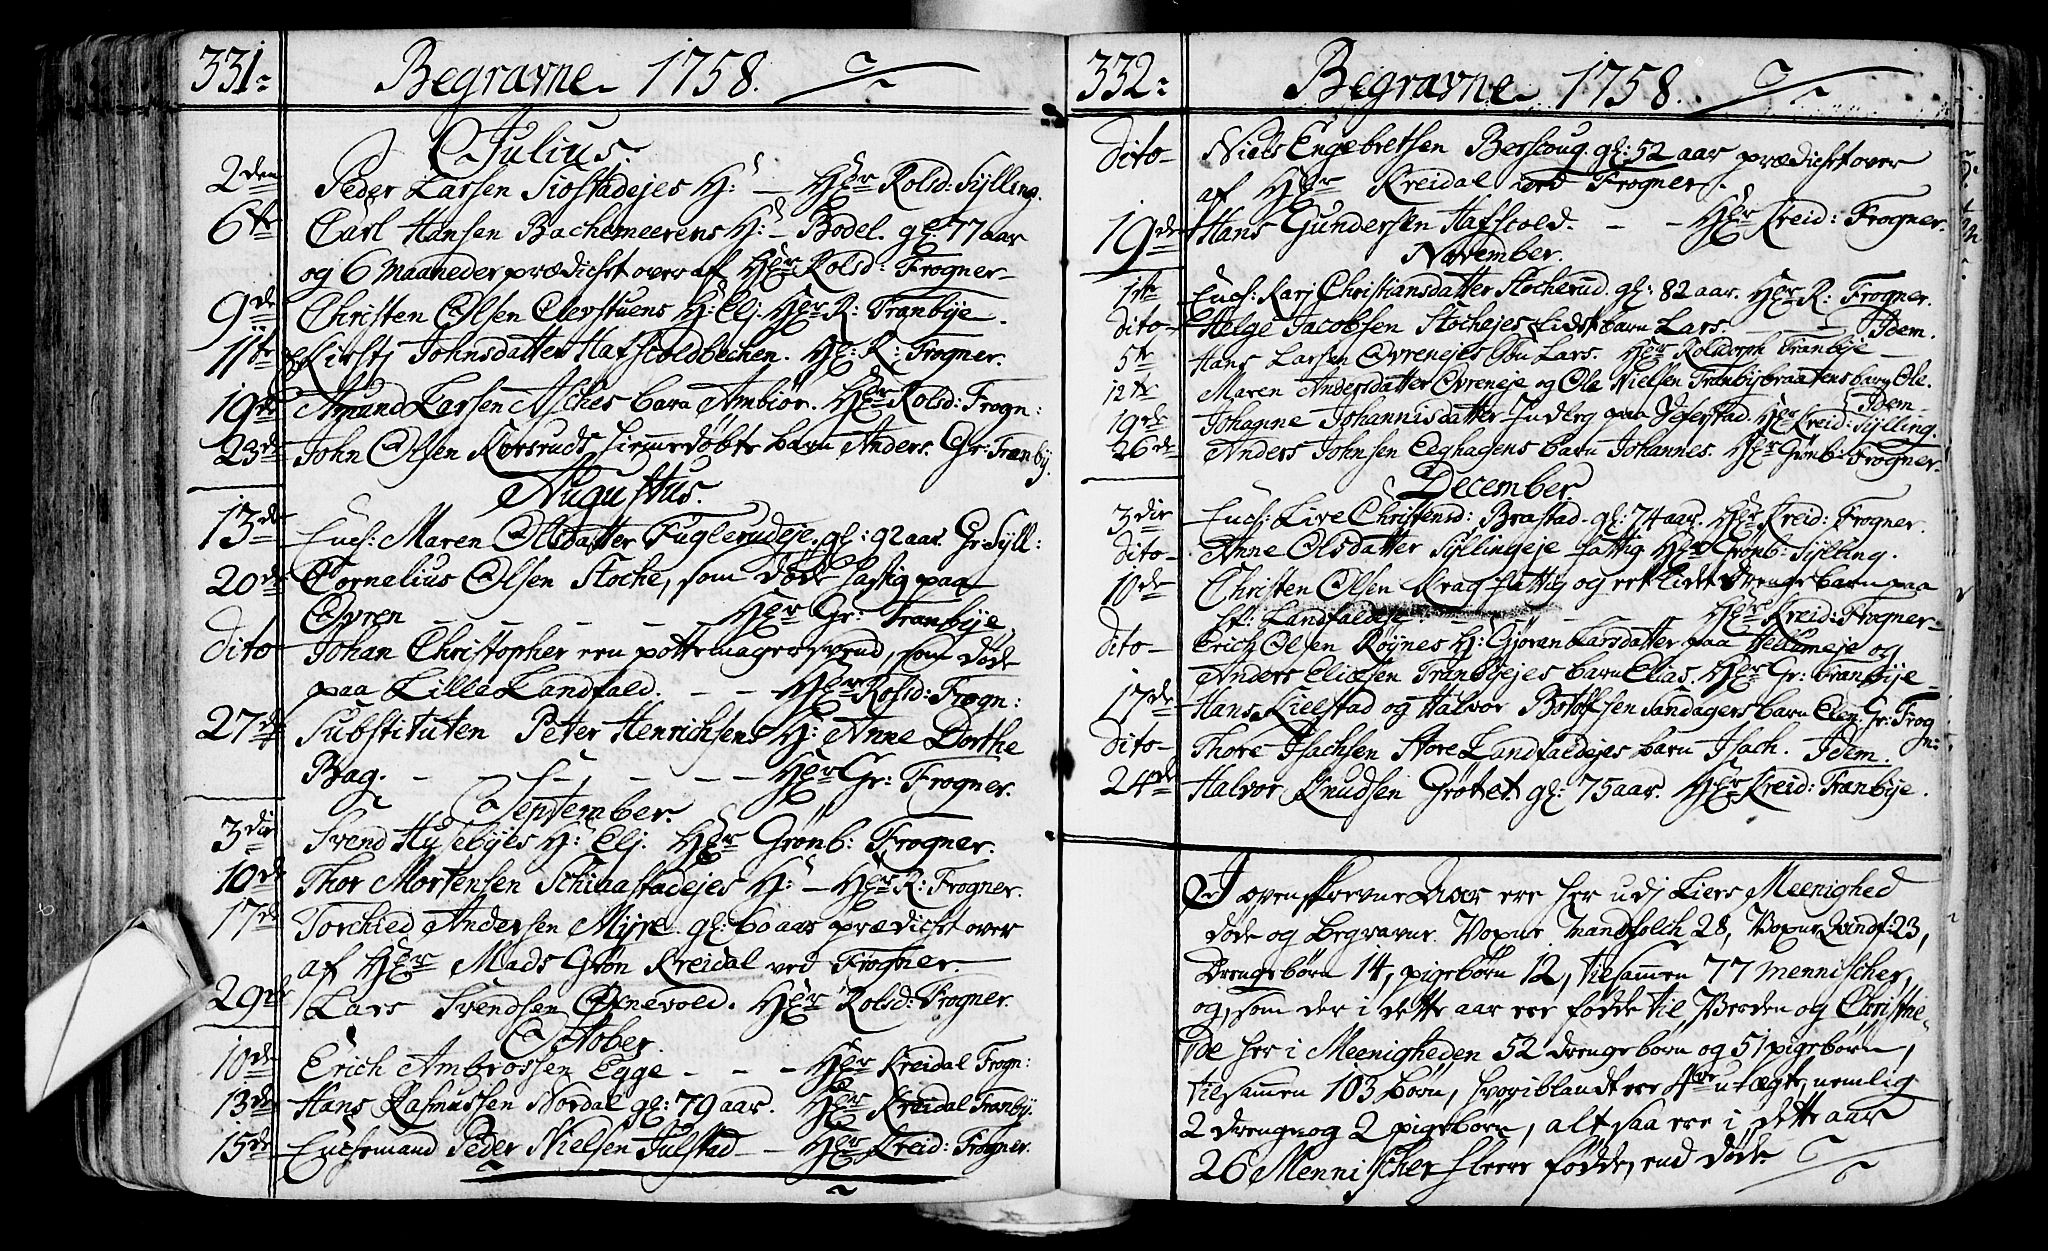 331.
Begravne 1758.
Julius.
2den Peder Larsen Siostadejes H: — Hr Rolsd: Sylling.
6te Carl Hansen Bachemeerens H: — Bodel. gl: 77 aar
og 6 Maaneder prædichet over af Hr Rolsd: Frogner
9de Christen Olsen Olerstuens H: Elj. Hr R: Tranbye.
11te Kirstj Johnsdatter Hafscoldbechen. Hr: R: Frogner.
19de Amund Larsen Asches barn Ambiør. Hr Rolsd: Frogn:
23de John Olsen Korsruds hiemmedøbte barn Anders. Gr: Tranby.
Augustus.
13de Ench: Maren Olsdatter Fuglerudeje. gl: 92 aar. Gr: Syll:
20de Cornelius Olsen Stoche, som døde hastig paa
Øvren — — — — — Hr Gr: Tranbye.
Dito Johan Christopher een pottemager svend, som døde
paa Lille Landfald. — — Hr Rolsd: Frogn:
27de Substituten Peter Henrichsens H: Anne Dorthe
Bag. — — — — — — Hr Gr: Frogner.
September.
3die Svend Husebyes H: Elj. Hr Grønb: Frogner.
10de Thor Mortensen Schiaastadejes H: — Hr R: Frogner.
17de Torchied Andersen Myre. gl: 60 aar prædichet over
af Hr Mads Grøn Kreidal ved Frogner.
29de Lars Svendsen Ørnevold. Hr Rolsd: Frogner.
October.
10de Erich Ambrossen Egge — — — Hr Kreidal Frogn:
13de Hans Rasmussen Nordal gl: 79 aar. Hr Kreidal Tranby.
15de Enchemand Peder Nielsen Julstad — Hr Kreid: Frogner.
332.
Begravne 1758.
Dito Niels Engebretsen Berscoug. gl: 52 aar prædichet over
af Hr Kreidal ved Frogner.
19de Hans Gundersen Hafscold. — — Hr Kreid: Frogner.
November.
1ste Ench: Karj Christiansdatter Stocherud. gl: 82 aar. Hr R: Frogner.
Dito Helge Jacobsen Stochejes lidet barn Lars. — — Idem.
5te Hans Larsen Øvrenejes Søn Lars. Hr Rolsdorph Tranbye
12te Maren Andersdatter Øvreneje og Ola Nielsen Tranbybraatens barn Ole. Idem
19de Johanne Johannisdatter Indberg paa Jeserstad. Hr Kreid: Sylling.
26de Anders Johnsen Eeghagens barn Johannes. Hr Grønb: Frogner.
December.
3die Ench: Live Christensd: Brastad. gl: 74 aar. Hr Kreid: Frogner.
Dito Anne Olsdatter Syllingeje fattig Hr Grønb: Sylling.
10de Christen Olsen Krag fattig og eet lidet drenge barn paa
St: Landfaldeje. — — Hr Kreid: Frogner
Dito Erich Olsen Røynes H: Gjøran Larsdatter paa Hellumeje og
Anders Eliesen Tranbyejes barn Elias. Hr Gr: Tranbye
17de Hans Kielstad og Halvor Botolfsen Sandagers barn Elen. Gr: Frogn:
Dito Thore Isachsen Store Landfaldejes barn Isach. Idem.
24de Halvor Knudsen Grøtet. gl: 75 aar. Hr Kreid: Tranbye.
I ovenskrevne Aar ere her udj Liers Meenighed
døde og begravne. Voxne mandfolch 28, Voxne Qvindf: 23,
Drengebørn 14, pigebørn 12, tilsammen 77 mennischer,
og, som der i dette aar ere fødde til Verden og Christne-
de her i Meenigheden 52 drengebørn og 51 pigebørn,
tilsammen 103 børn, hvoriblandt ere 4re uægte, nemlig
2 drenge og 2 pigebørn, alt saa ere i dette aar
26 Mennischer fleere fødde, end døde